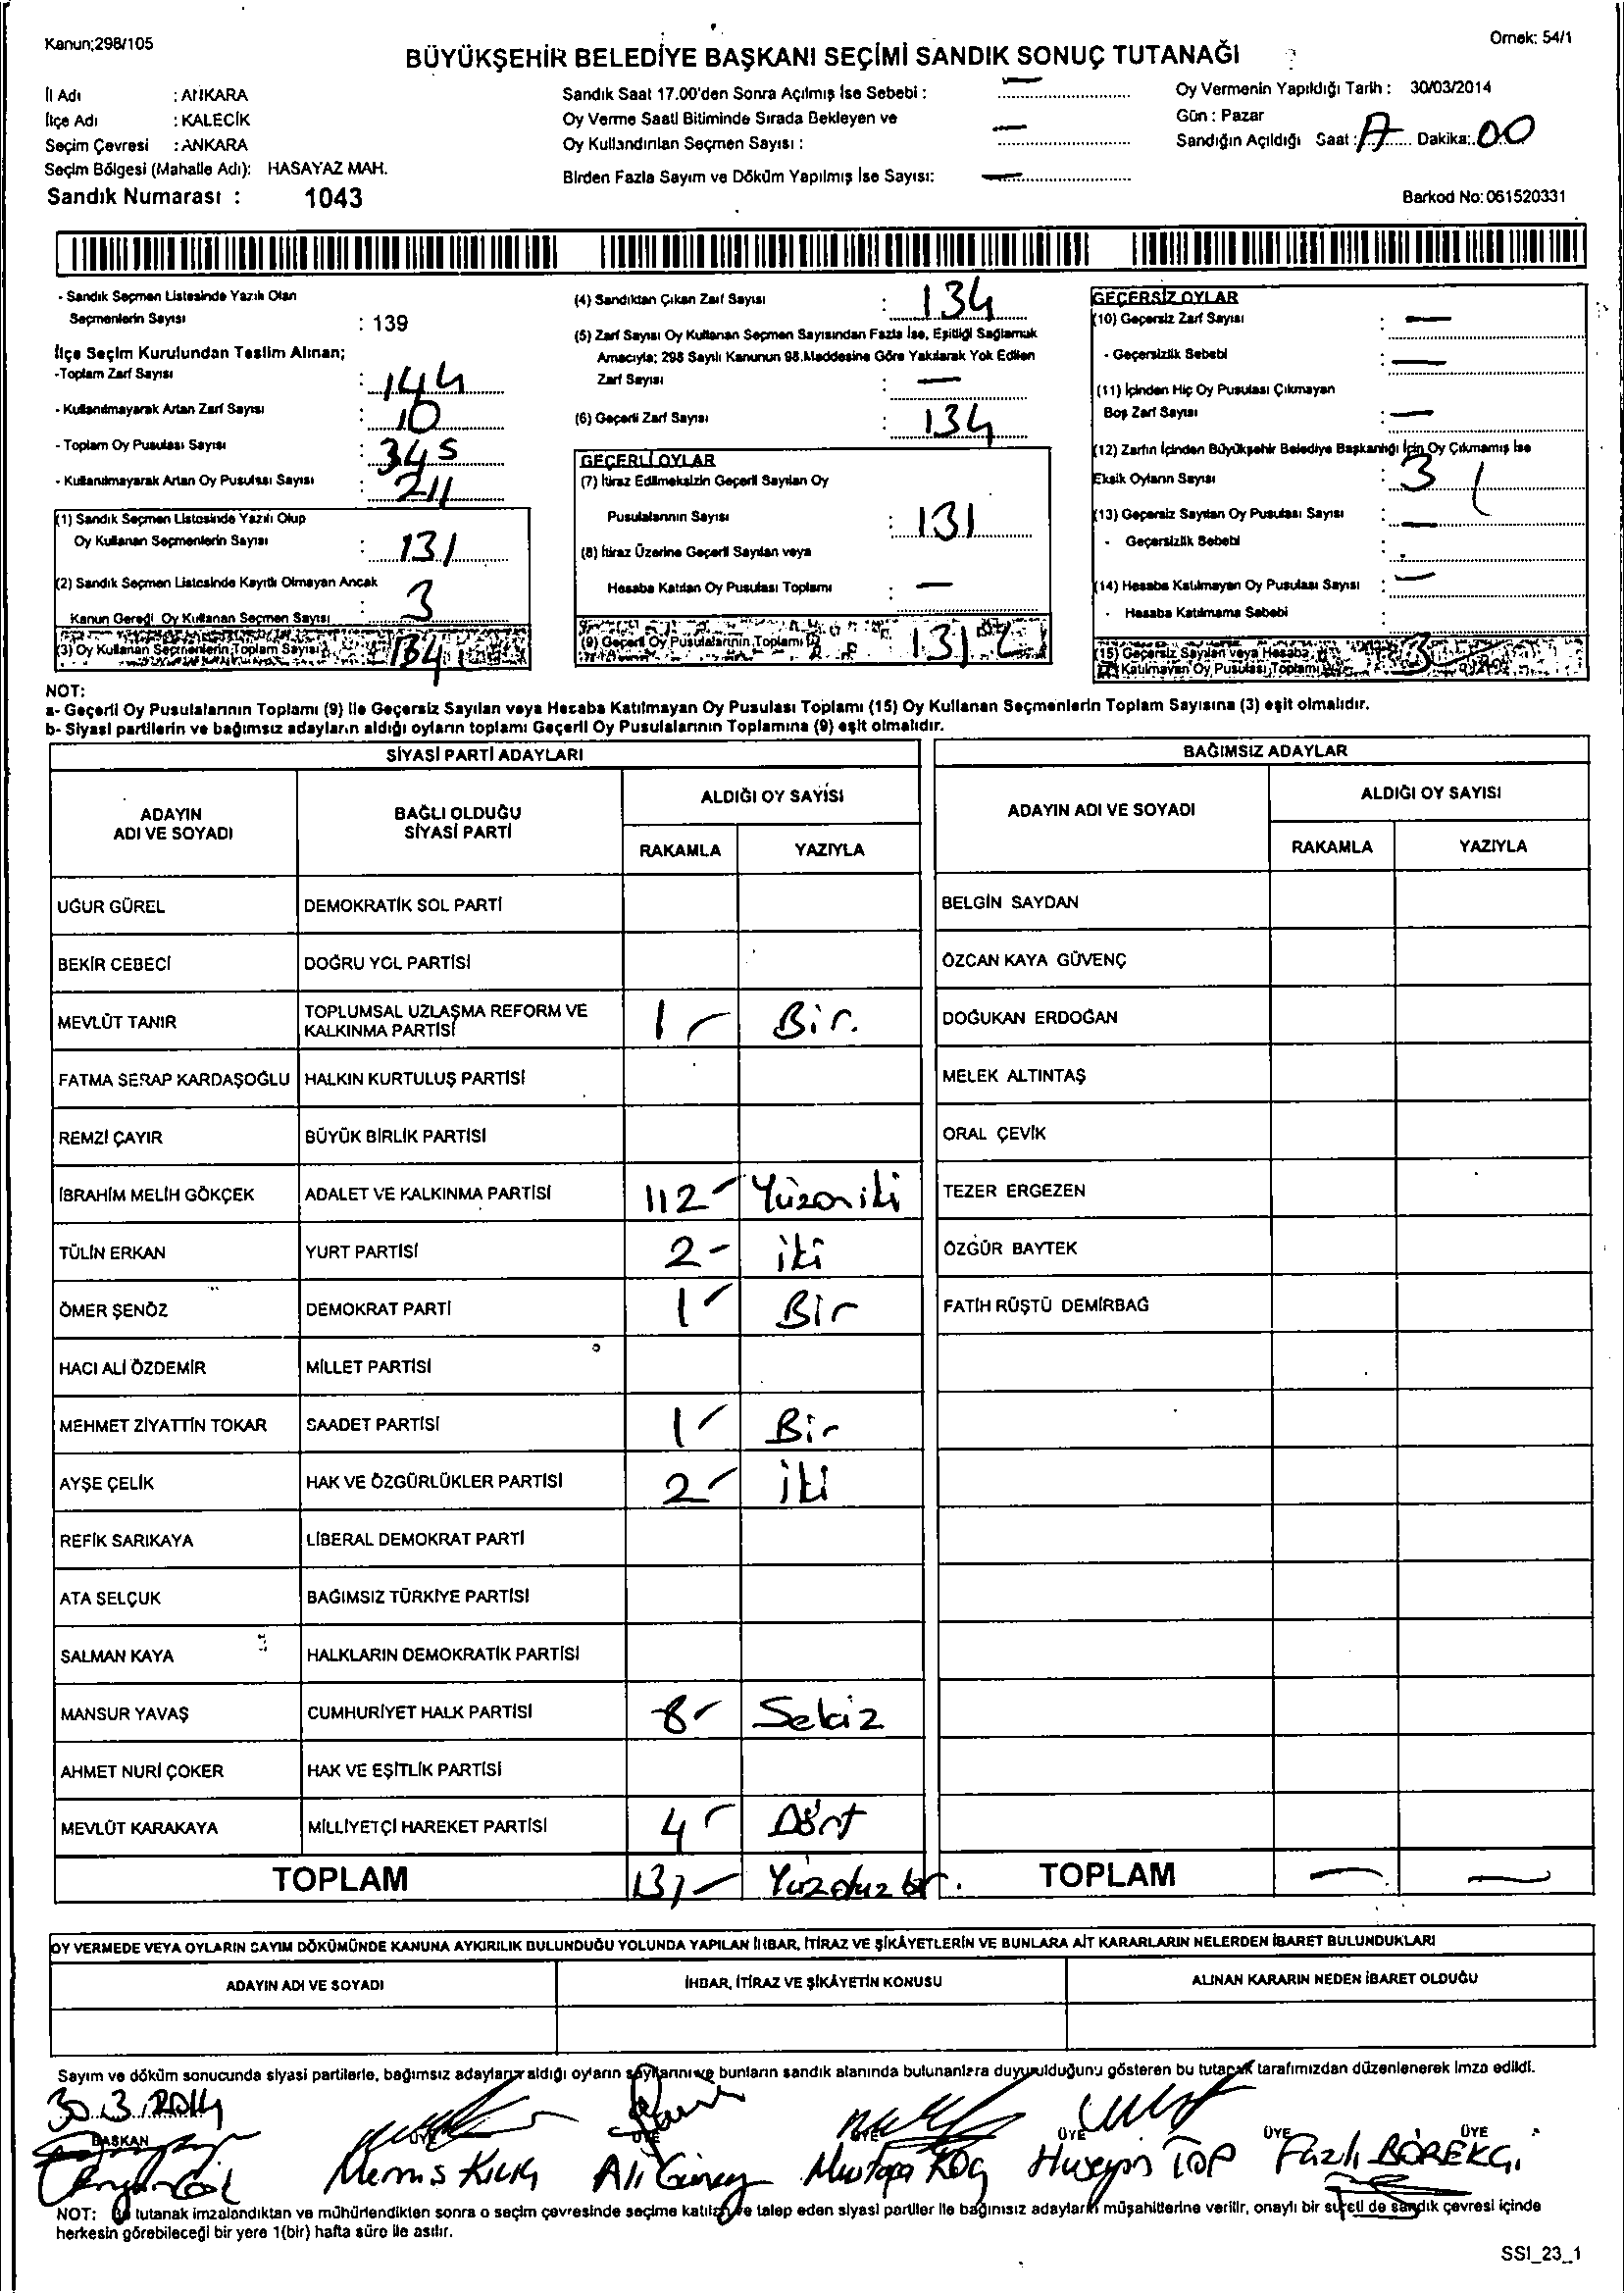 Kanun;298/105
Örnek: 54/1
BÜYÜKŞEHİR BELEDİYE BAŞKANI SEÇİMİ SANDIK SONUÇ TUTANAĞI
İl Adı : ANKARA
İlçe Adı : KALECİK
Seçim Çevresi : ANKARA
Seçim Bölgesi (Mahalle Adı): HASAYAZ MAH.
Sandık Numarası : 1043
Sandık Saat 17.00'den Sonra Açılmış İse Sebebi : —
Oy Verme Saati Bitiminde Sırada Bekleyen ve
Oy Kullandırılan Seçmen Sayısı : —
Birden Fazla Sayım ve Döküm Yapılmış İse Sayısı: —
Oy Vermenin Yapıldığı Tarih : 30/03/2014
Gün : Pazar
Sandığın Açıldığı Saat : 17 Dakika: 00
Barkod No: 061520331
- Sandık Seçmen Listesinde Yazılı Olan
Seçmenlerin Sayısı : 139
İlçe Seçim Kurulundan Teslim Alınan;
-Toplam Zarf Sayısı : 144
- Kullanılmayarak Artan Zarf Sayısı : 10
- Toplam Oy Pusulası Sayısı : 345
- Kullanılmayarak Artan Oy Pusulası Sayısı : 211
(1) Sandık Seçmen Listesinde Yazılı Olup
Oy Kullanan Seçmenlerin Sayısı : 131
(2) Sandık Seçmen Listesinde Kayıtlı Olmayan Ancak
Kanun Gereği Oy Kullanan Seçmen Sayısı : 3
(3) Oy Kullanan Seçmenlerin Toplam Sayısı 134
(4) Sandıktan Çıkan Zarf Sayısı : 134
(5) Zarf Sayısı Oy Kullanan Seçmen Sayısından Fazla İse, Eşitliği Sağlamak
Amacıyla; 298 Sayılı Kanunun 98.Maddesine Göre Yakılarak Yok Edilen
Zarf Sayısı : —
(6) Geçerli Zarf Sayısı : 134
GEÇERLİ OYLAR
(7) İtiraz Edilmeksizin Geçerli Sayılan Oy
Pusulalarının Sayısı : 131
(8) İtiraz Üzerine Geçerli Sayılan veya
Hesaba Katılan Oy Pusulası Toplamı : —
(9) Geçerli Oy Pusulalarının Toplamı 131
GEÇERSİZ OYLAR
(10) Geçersiz Zarf Sayısı : —
- Geçersizlik Sebebi : —
(11) İçinden Hiç Oy Pusulası Çıkmayan
Boş Zarf Sayısı : —
(12) Zarfın İçinden Büyükşehir Belediye Başkanlığı İçin Oy Çıkmamış İse
Eksik Oyların Sayısı : 3
(13) Geçersiz Sayılan Oy Pusulası Sayısı : —
- Geçersizlik Sebebi :
(14) Hesaba Katılmayan Oy Pusulası Sayısı : —
- Hesaba Katılmama Sebebi :
(15) Geçersiz Sayılan veya Hesaba
Katılmayan Oy Pusulası Toplamı 3
NOT:
a- Geçerli Oy Pusulalarının Toplamı (9) ile Geçersiz Sayılan veya Hesaba Katılmayan Oy Pusulası Toplamı (15) Oy Kullanan Seçmenlerin Toplam Sayısına (3) eşit olmalıdır.
b- Siyasi partilerin ve bağımsız adayların aldığı oyların toplamı Geçerli Oy Pusulalarının Toplamına (9) eşit olmalıdır.
SİYASİ PARTİ ADAYLARI
ADAYIN ADI VE SOYADI
BAĞLI OLDUĞU SİYASİ PARTİ
ALDIĞI OY SAYISI
RAKAMLA YAZIYLA
UĞUR GÜREL DEMOKRATİK SOL PARTİ
BEKİR CEBECİ DOĞRU YOL PARTİSİ
MEVLÜT TANIR TOPLUMSAL UZLAŞMA REFORM VE KALKINMA PARTİSİ 1 - Bir.
FATMA SERAP KARDAŞOĞLU HALKIN KURTULUŞ PARTİSİ
REMZİ ÇAYIR BÜYÜK BİRLİK PARTİSİ
İBRAHİM MELİH GÖKÇEK ADALET VE KALKINMA PARTİSİ 112 - Yüzoniki
TÜLİN ERKAN YURT PARTİSİ 2 - iki
ÖMER ŞENÖZ DEMOKRAT PARTİ 1 - Bir
HACI ALİ ÖZDEMİR MİLLET PARTİSİ
MEHMET ZİYATTİN TOKAR SAADET PARTİSİ 1 - Bir
AYŞE ÇELİK HAK VE ÖZGÜRLÜKLER PARTİSİ 2 - iki
REFİK SARIKAYA LİBERAL DEMOKRAT PARTİ
ATA SELÇUK BAĞIMSIZ TÜRKİYE PARTİSİ
SALMAN KAYA HALKLARIN DEMOKRATİK PARTİSİ
MANSUR YAVAŞ CUMHURİYET HALK PARTİSİ 8 - Sekiz
AHMET NURİ ÇOKER HAK VE EŞİTLİK PARTİSİ
MEVLÜT KARAKAYA MİLLİYETÇİ HAREKET PARTİSİ 4 - Dört
TOPLAM 131 - Yüzotuzbir.
BAĞIMSIZ ADAYLAR
ADAYIN ADI VE SOYADI
ALDIĞI OY SAYISI
RAKAMLA YAZIYLA
BELGİN SAYDAN
ÖZCAN KAYA GÜVENÇ
DOĞUKAN ERDOĞAN
MELEK ALTINTAŞ
ORAL ÇEVİK
TEZER ERGEZEN
ÖZGÜR BAYTEK
FATİH RÜŞTÜ DEMİRBAĞ
TOPLAM — —
OY VERMEDE VEYA OYLARIN SAYIM DÖKÜMÜNDE KANUNA AYKIRILIK BULUNDUĞU YOLUNDA YAPILAN İHBAR, İTİRAZ VE ŞİKÂYETLERİN VE BUNLARA AİT KARARLARIN NELERDEN İBARET BULUNDUKLARI
ADAYIN ADI VE SOYADI İHBAR, İTİRAZ VE ŞİKÂYETİN KONUSU ALINAN KARARIN NEDEN İBARET OLDUĞU
Sayım ve döküm sonucunda siyasi partilerle, bağımsız adayların aldığı oyların sayılarını ve bunların sandık alanında bulunanlara duyurulduğunu gösteren bu tutanak tarafımızdan düzenlenerek imza edildi.
30.3.2014
BAŞKAN ÜYE ÜYE ÜYE ÜYE ÜYE ÜYE
Memis Kılıç Ali Güney Mustafa Koç Huseyin TOP Fazlı BÖREKÇİ
NOT: Bu tutanak imzalandıktan ve mühürlendikten sonra o seçim çevresinde seçime katılan ve talep eden siyasi partiler ile bağımsız adayların müşahitlerine verilir, onaylı bir sureti de sandık çevresi içinde
herkesin görebileceği bir yere 1(bir) hafta süre ile asılır.
SSI_23_1